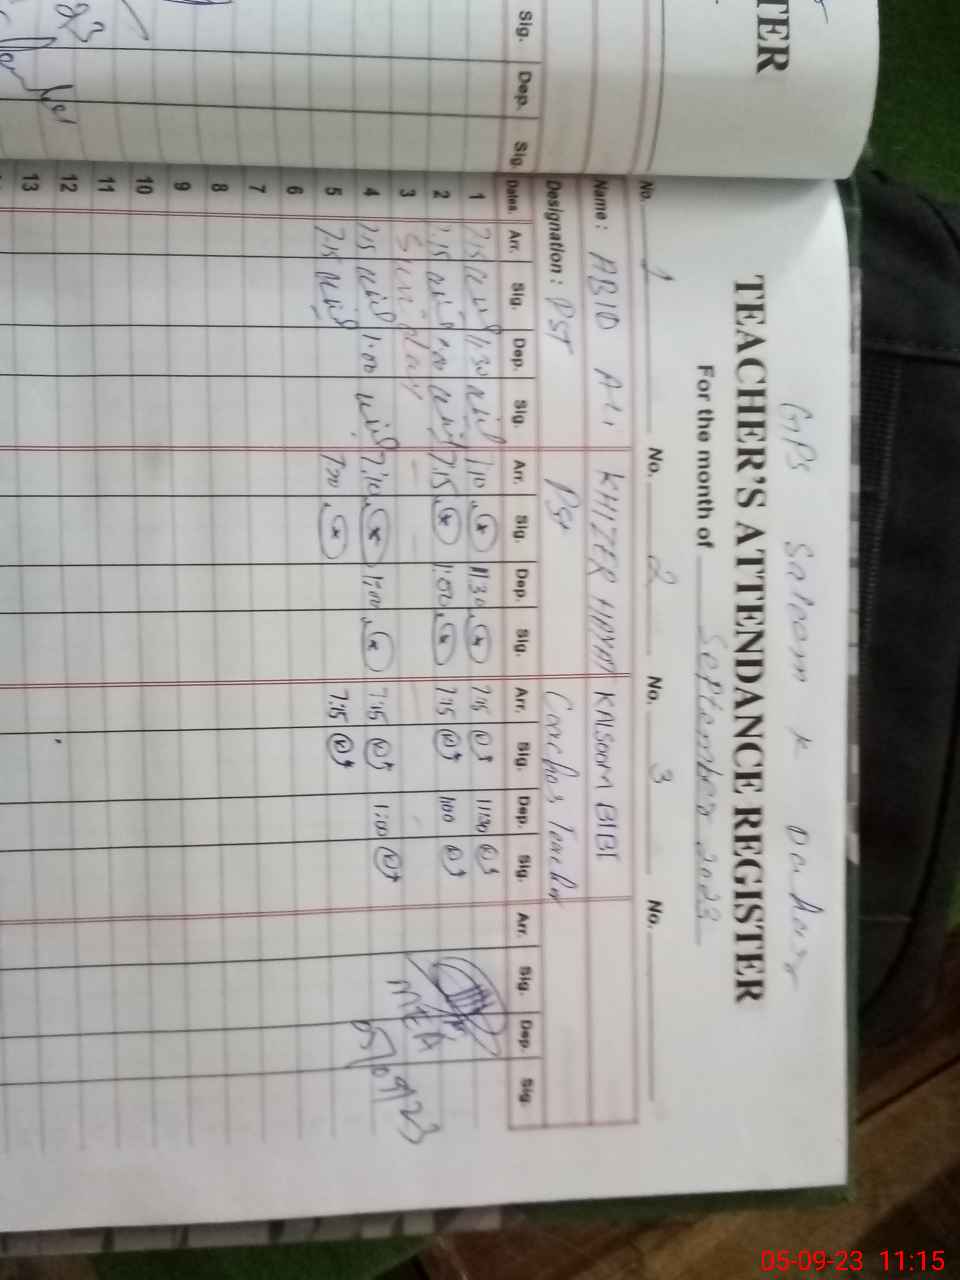 TER
Sig. Dep. Sig.
23
GPS
TEACHER'S ATTENDANCE REGISTER
For the month of September 2023
No. 1 No. 2 No. 3 No.
Name: ABID Ali KHIZER HAYAT KALSOOM BIBI
Designation: PST PST Coaches Teacher
Dates Arr. Sig. Dep. Sig. Arr. Sig. Dep. Sig. Arr. Sig. Dep. Sig. Arr. Sig. Dep. Sig.
1 7.15 11:30 7.10 11:30 7:15 11:30
2 7.15 1:00 7.15 1:00 7:15 1:00
3 Sunday
4 7.15 1:00 7:10 1:00 7:15 1:00
5 7.15 7:15
6
7
8
9
10
11
12
13
MEA
05/09/23
05-09-23 11:15